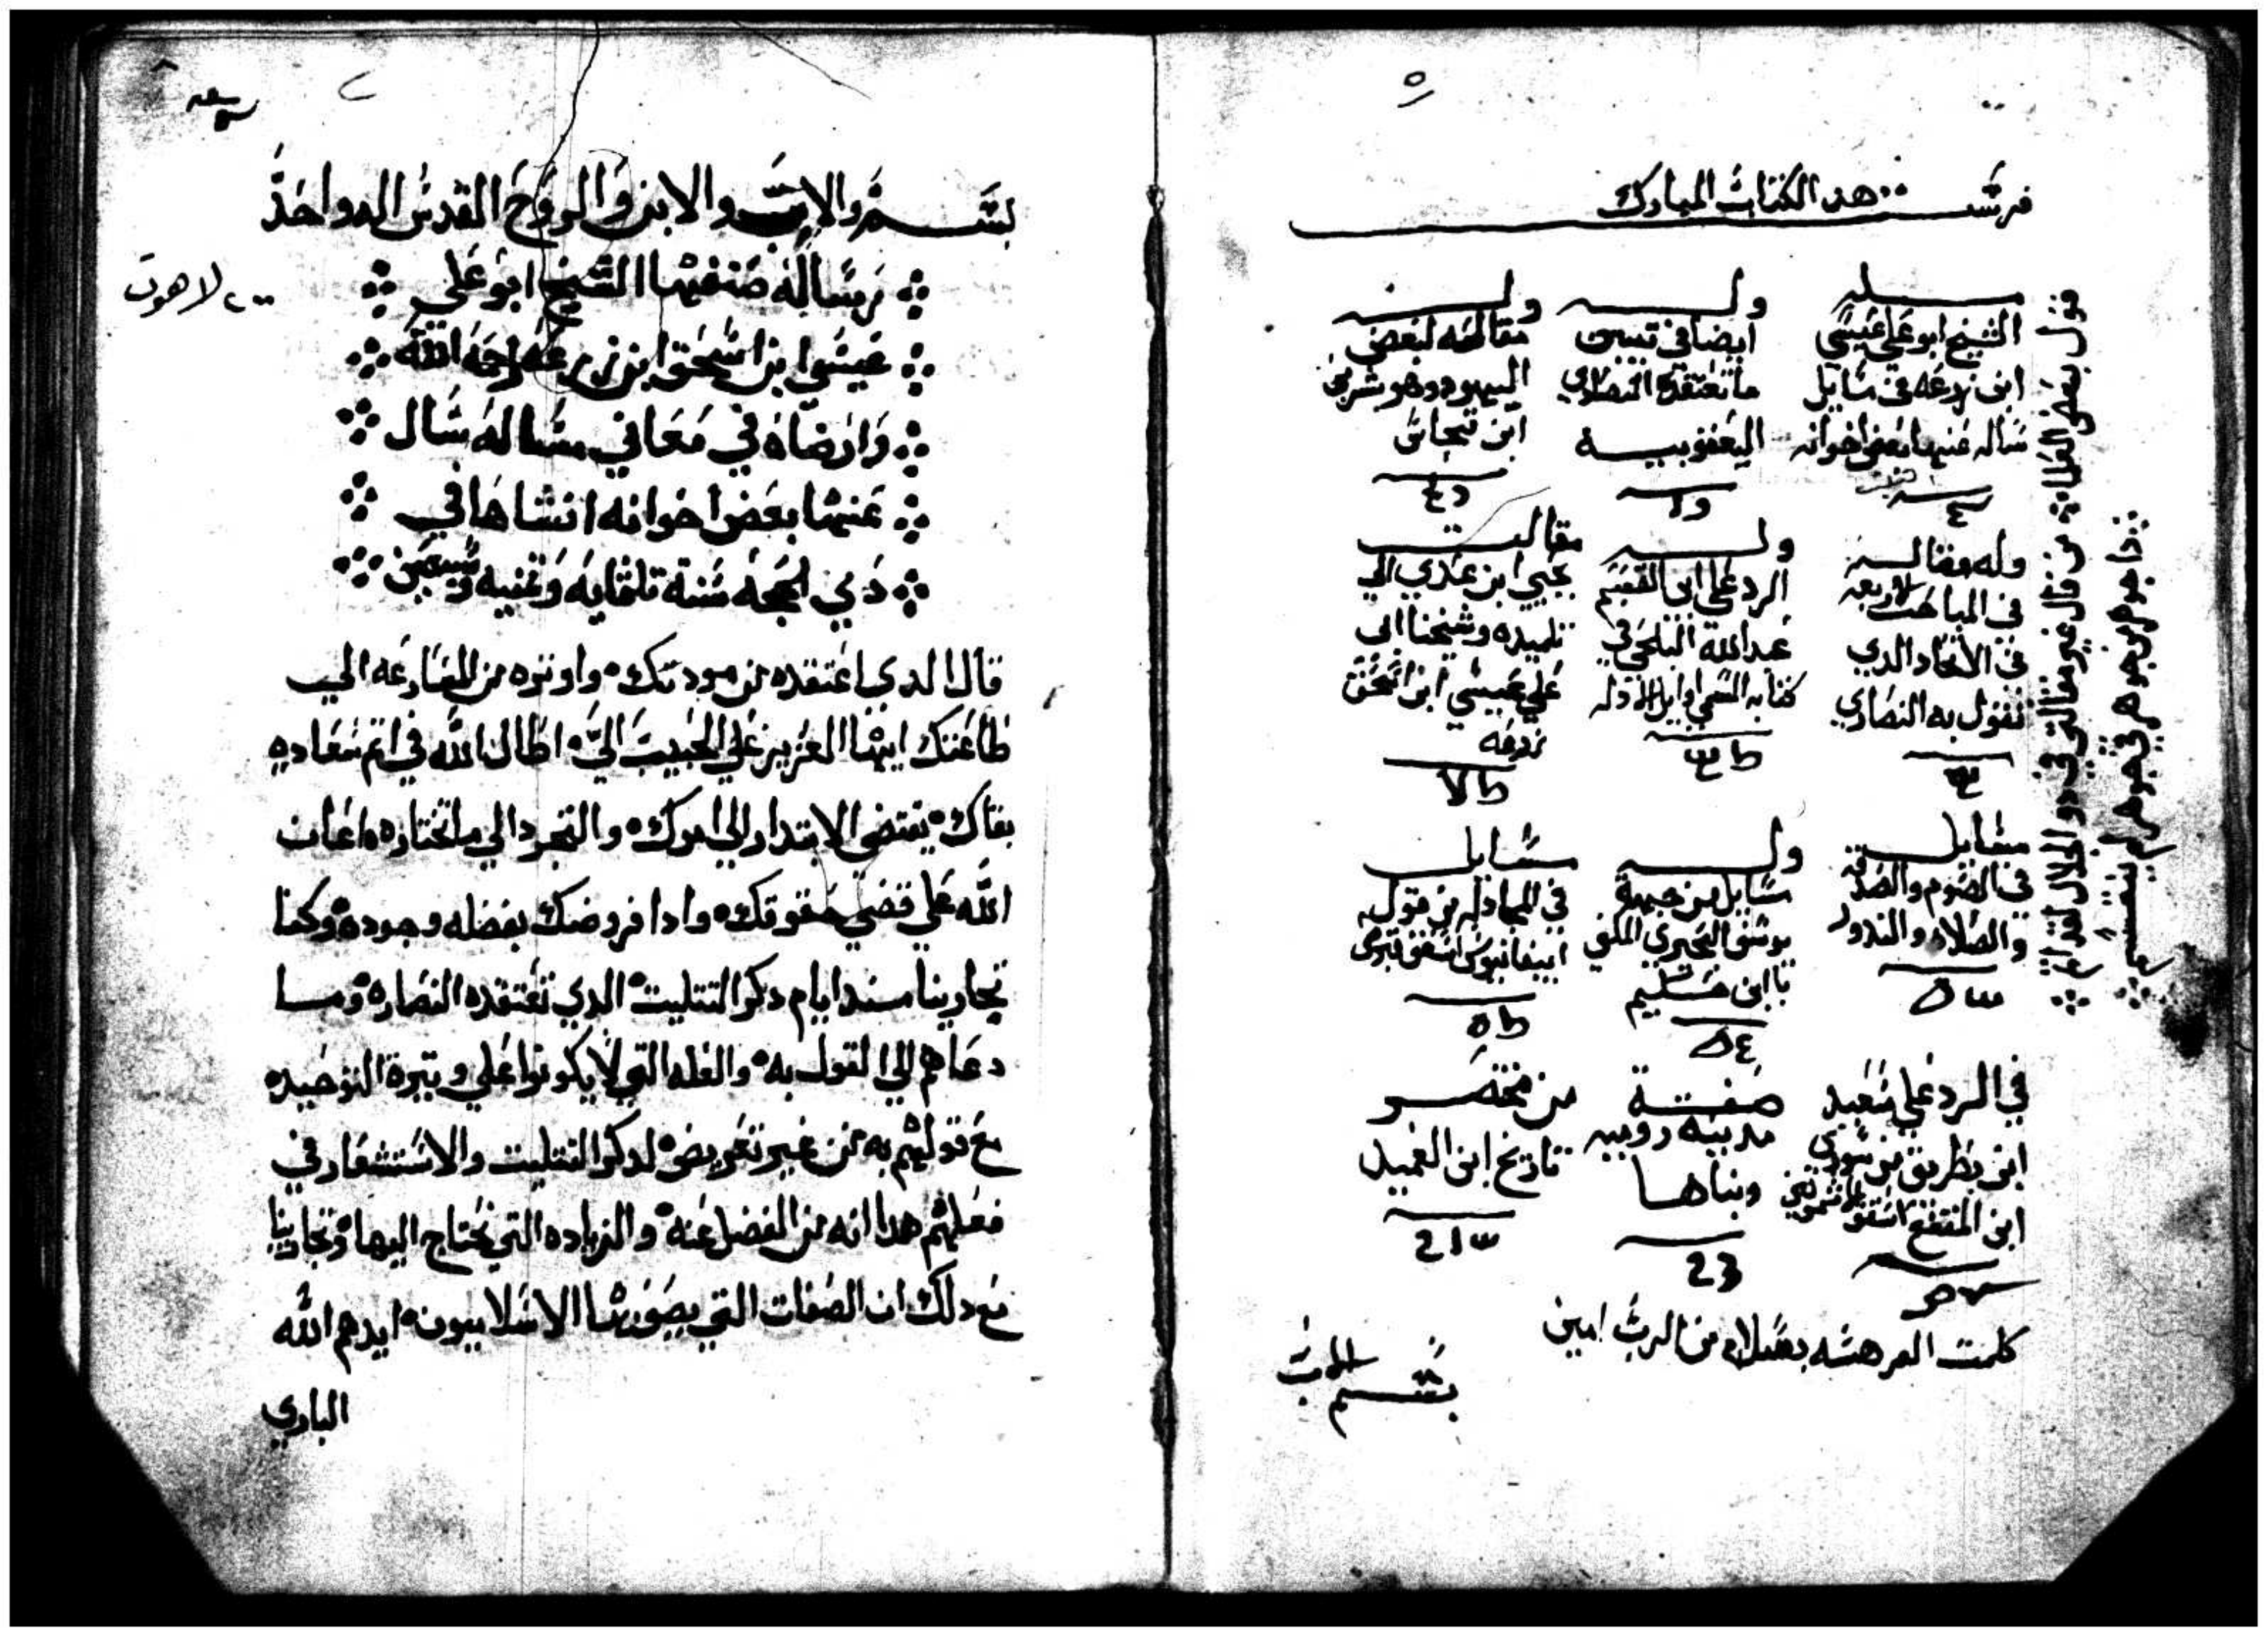 فرست هدا الكتاب المبارك
الشيخ ابو علي عيسي
ابن زرعه في مسايل
ساله عنها بعض اخوانه
وله
ايضا في تبيين
ما تعتقده النصاري
اليعقوبيه
وله
مقالته لبعض
اليهود وهو بشر بن
وله مقاله
في المباحث الاربعه
في الاتحاد الدي
تقول به النصاري
وله
الرد علي ابي القسم
عبدالله البلخي في
كتابه المسمي اوايل الادله
مقالت
يحيي ابن عدي الي
تلميده وشيخنا ابي
علي عيسي ابن اسحق
زرعه
مسايل
في الصوم والصدقه
والصلاه والندور
وله
مسايل من جهة
يوسف البحيري الملقي
مسايل
في المجادله من قول
ابيفانيوس اسقف قبرس
في الرد علي سعيد
ابن بطريق من
ابن المقفع اسقف الاشمونين
صفة
مدينة روميه
وبناها
23
من مختصر
تاريخ ابن العميد
كلمت الفرهسه بسلام من الرب امين
بسم الاب
قول بعض العلماء من قال غير مقالتي في دو الجلال
لاهوت
بسم الاب والابن والروح القدس اله واحد
رساله صنفها الشيخ ابو علي
عيسي ابن اسحق ابن زرعه رحمه الله
وارضاه في معاني مساله سال
عنها بعض اخوانه انشاها في
دي الحجه سنة تلتمايه وتمنيه وسبعين
قال الدي اعتقده من مودتك واوتره من المسارعه الي
طاعتك ايها العزيز علي الحبيب الي اطال الله في اتم سعاده
بقاك يقتضي الابتدار الي امرك والتجرد الي ما تختاره اعان
الله علي قضي حقوقك وادا فروضك بفضله وجوده وكنا
تجارينا مند ايام دكر التتليت الدي تعتقده النصاره وما
دعاهم الي القول به والعله التي لا يكونوا علي وتيرة التوحيد
مع قولهم به من غير تعريض لدكر التتليت والاستشعار في
فعلهم هدا انه من الفضل عنه والزياده التي يحتاج اليها وتجارينا
مع دلك ان الصفات التي يصورها الاسلاميون ايدهم الله
الباري